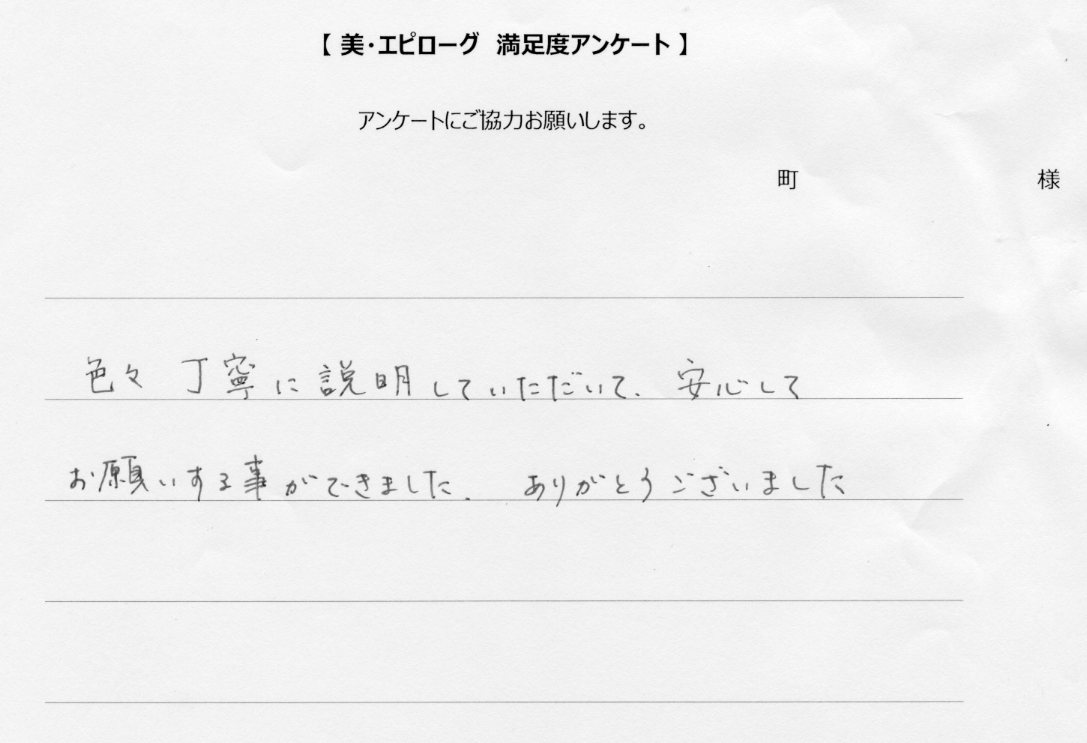 【 美・エピローグ 満足度アンケート 】
アンケートにご協力お願いします。
町 様
色々 丁寧に説明していただいて、安心して
お願いする事ができました。 ありがとうございました